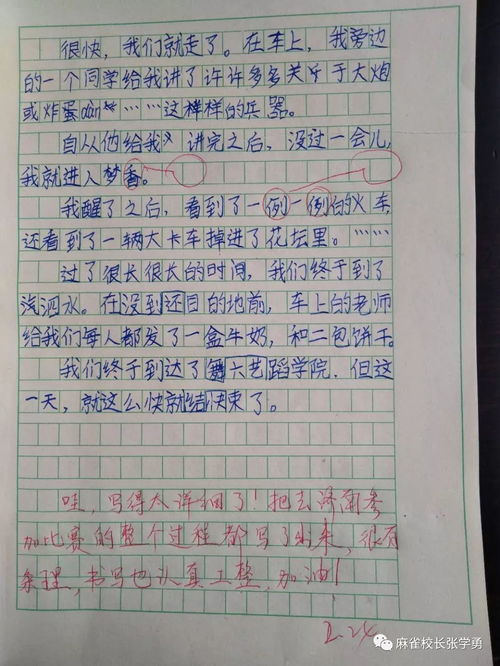 很快，我们就走了。在车上，我旁边
的一个同学给我讲了许许多多关于大炮
或炸蛋dàn……这样样的兵器。
自从他给我讲完之后，没过一会儿，
我就进入梦香。
我醒了之后，看到了一例一例的火车，
还看到了一辆大卡车掉进了花坛里。……
过了很长很长的时间，我们终于到了
汽泗水。在没到还目的地前，车上的老师
给我们每人都发了一盒牛奶，和二包饼干。
我们终于到达了舞六艺蹈学院．但这
一天，就这么快就结快束了。
哇，写得太详细了！把去济南参
加比赛的整个过程都写了出来，很有
条理，书写也认真工整，加油！
2.24
麻雀校长张学勇